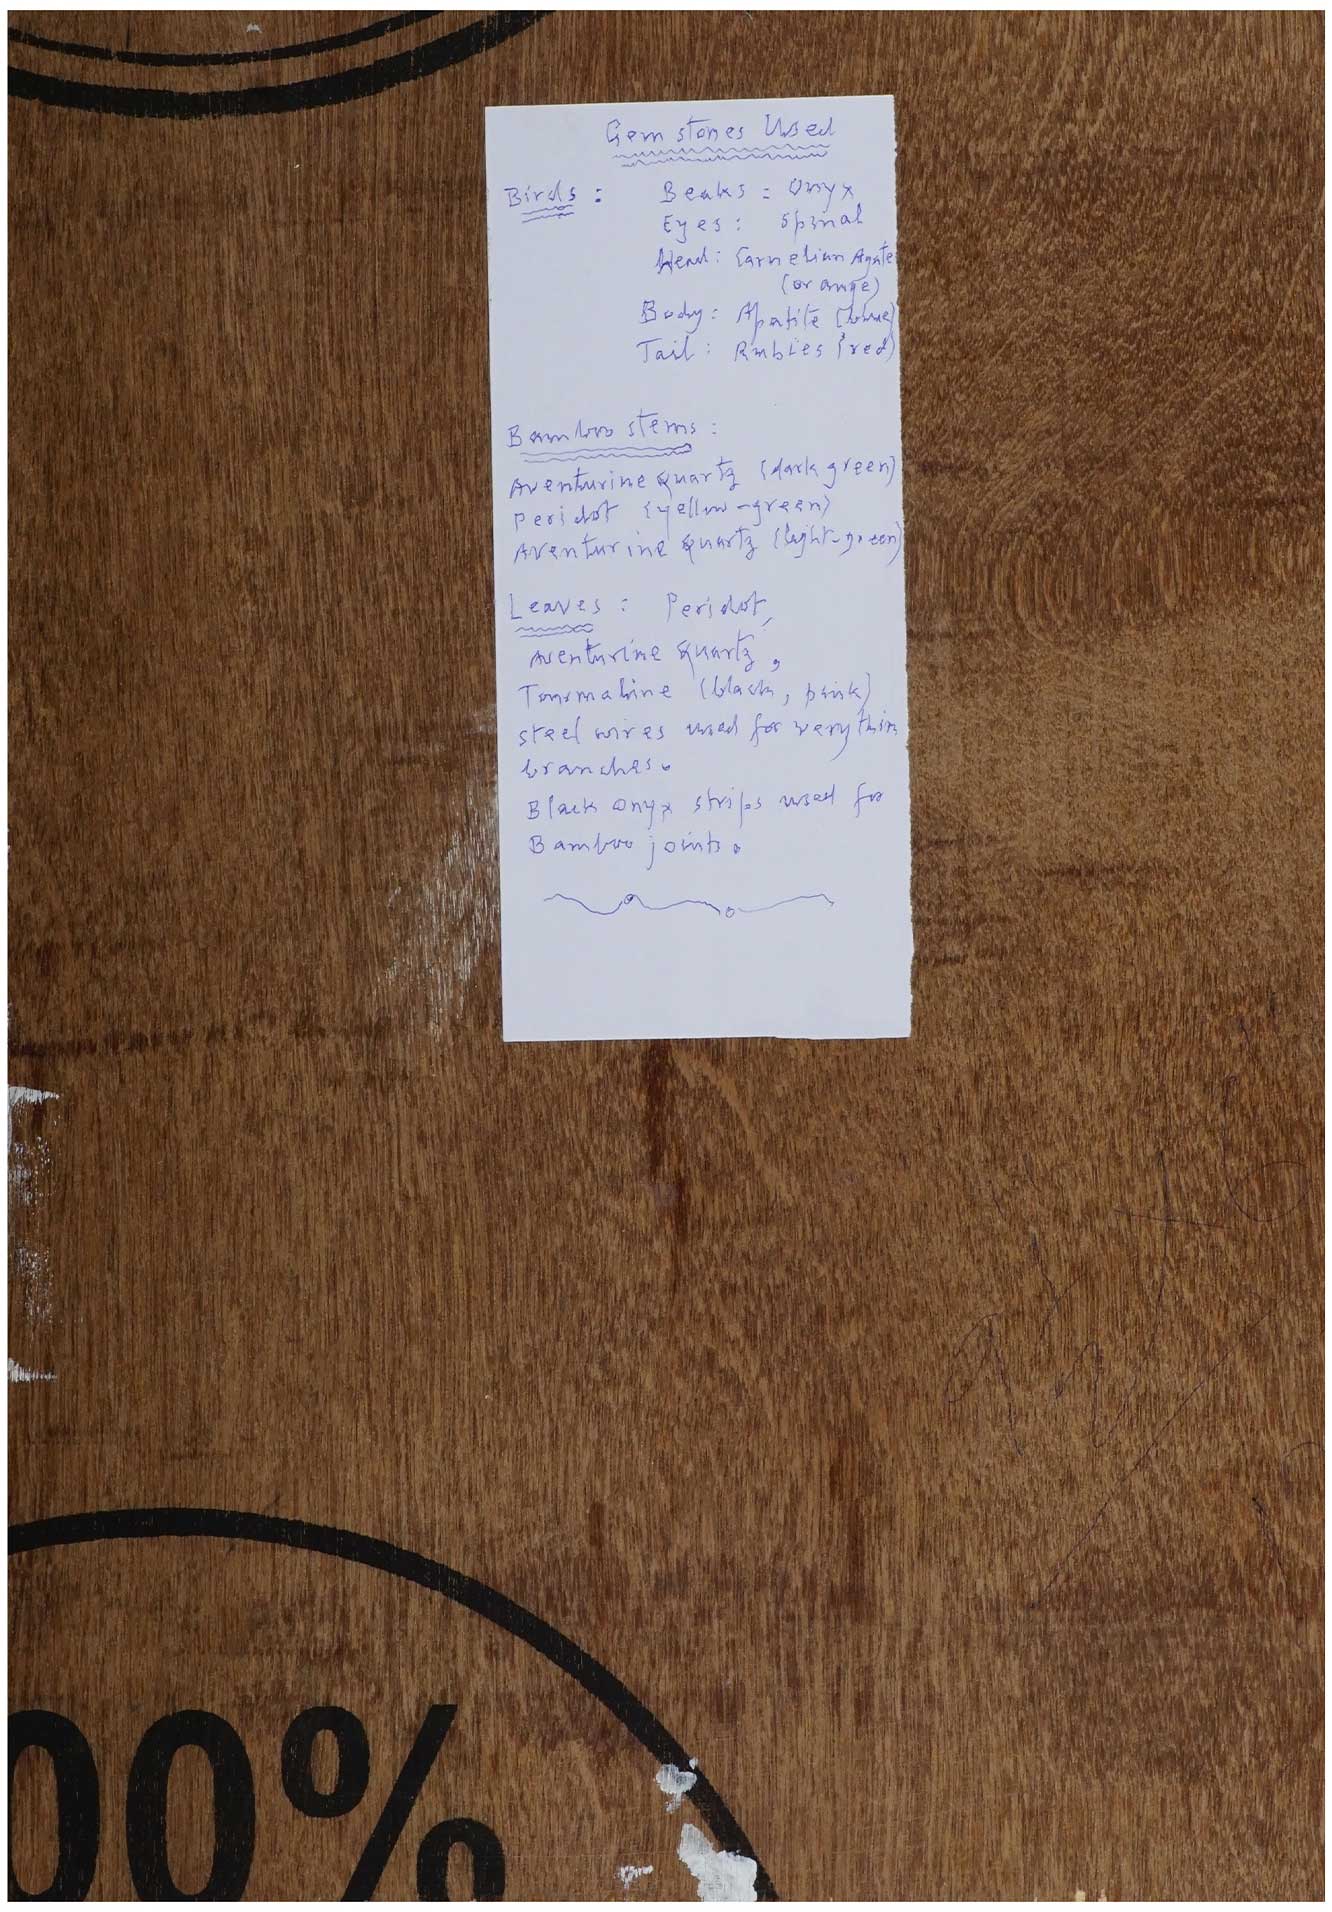 Gem stones Used
Birds : Beaks = Onyx
Eyes : Spinal
Head : Carnelian Agate
(orange)
Body : Apatite (blue)
Tail : Rubies (red)
Bamboo stems :
Aventurine Quartz (dark green)
Peridot (yellow-green)
Aventurine Quartz (light-green)
Leaves : Peridot,
Aventurine Quartz,
Tourmaline (black, pink)
steel wires used for very thin
branches.
Black onyx strips used for
Bamboo joints.
00%